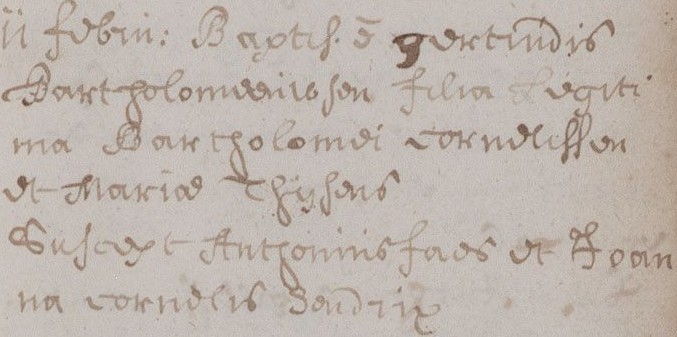 ii febru: Baptis. ē gertrudis
Bartholomeeussen filia Legiti
ma Bartholomei cornelissen
et Mariae Thijsens
Suscept Anthonius faes et Joan
na cornelis Hendrix